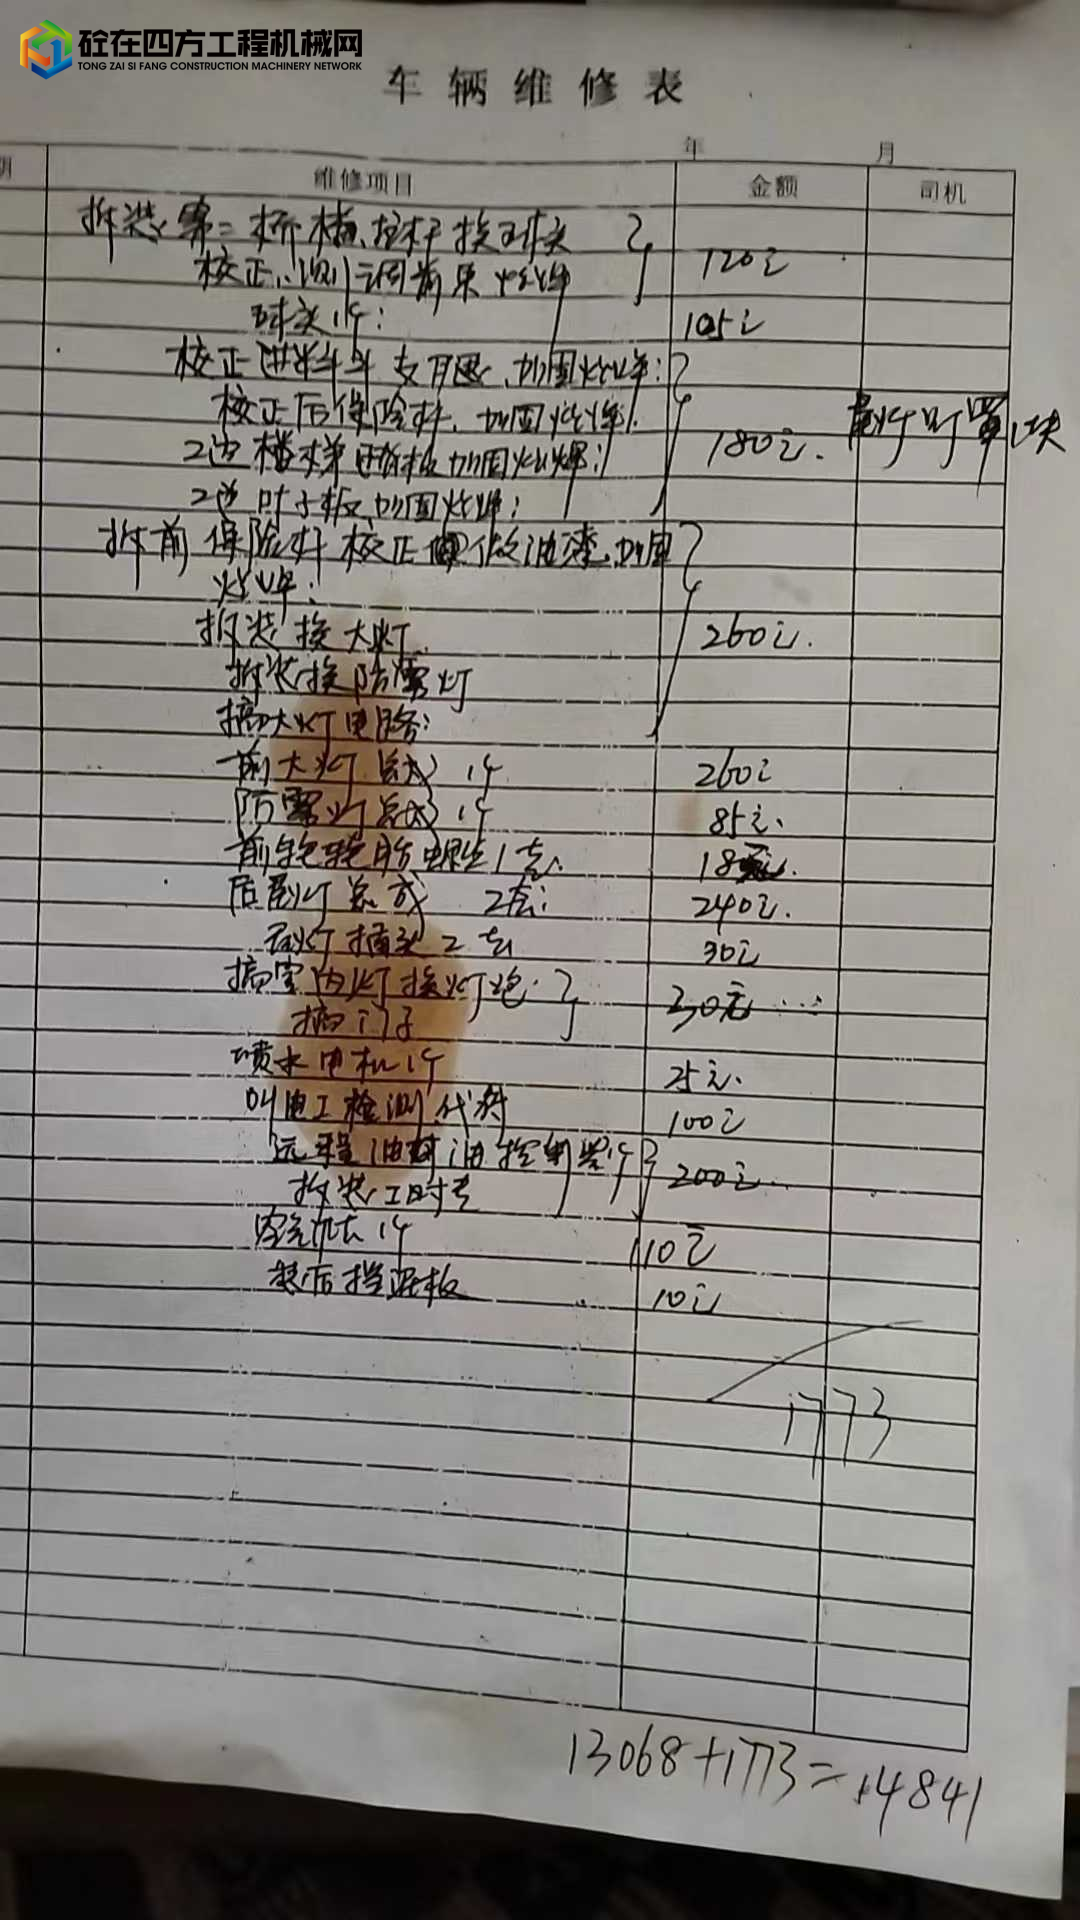 砼在四方工程机械网
TONG ZAI SI FANG CONSTRUCTION MACHINERY NETWORK
车辆维修表
年 月
期 维修项目 金额 司机
拆装第二桥横拉杆换球头
校正、测调前束烧焊 120元
球头1个: 105元
校正进料斗支 加固烧焊;
校正后保险杆、加固烧焊; 尾灯灯罩1块
2边楼梯踏板加固烧焊; 180元.
2边叶子板加固烧焊;
拆前保险杆校正 做油漆、加固
烧焊;
拆装换大灯. 260元.
拆装换防雾灯
搞大灯电路;
前大灯总成 1个 260元
防雾灯总成 1个 85元.
前轮轮胎螺丝1套. 18元.
后尾灯总成 2套; 240元.
尾灯插头2套 30元
搞室内灯换灯泡. 30元
搞门子
喷水电机1个 25元.
叫电工检测代付 100元
远程油门油控制器1个 200元
拆装工时
1个 110元
装后挡泥板 10元
1773
13068+1773=14841